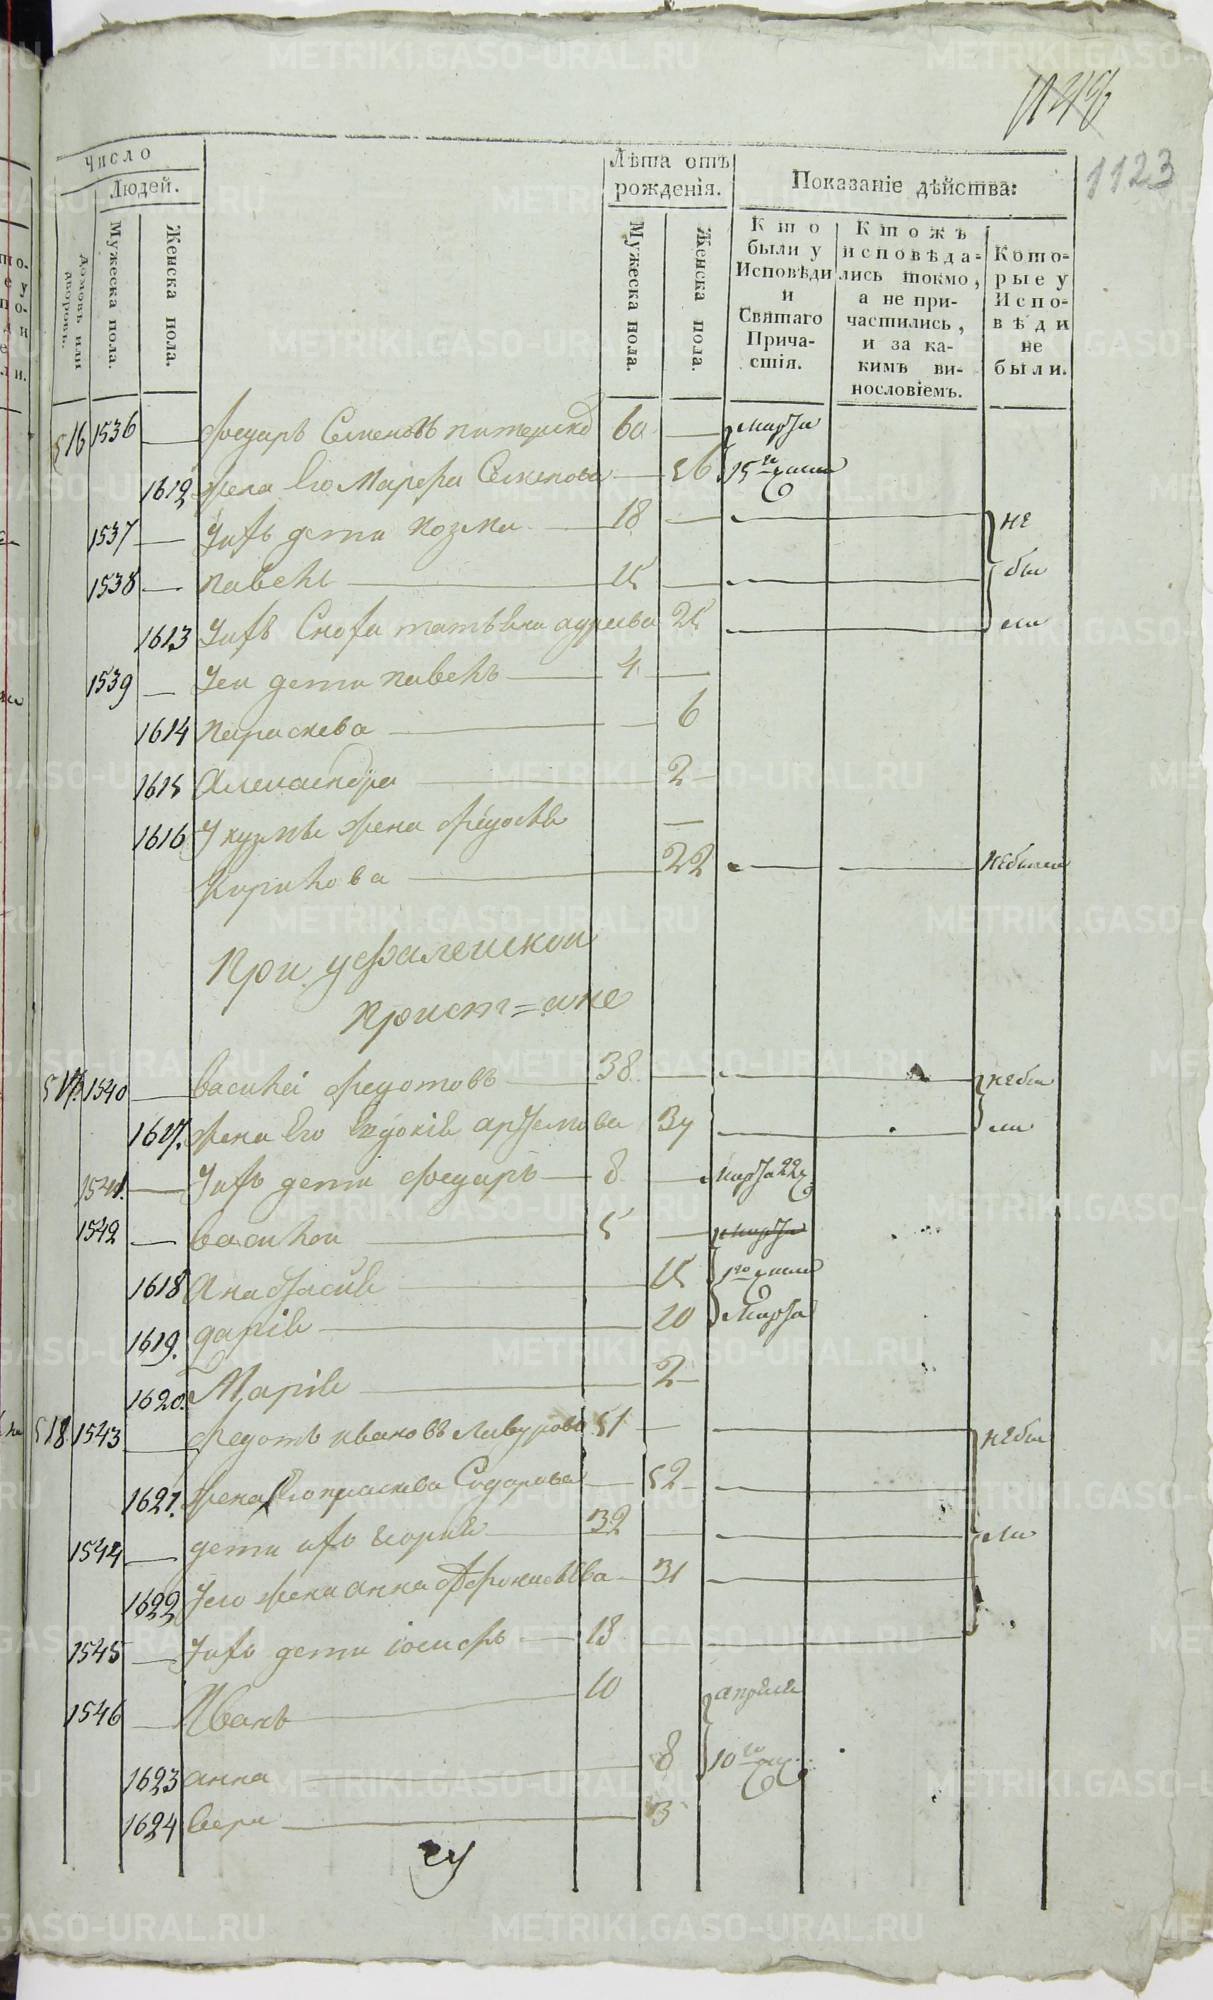 1123
Число
Людей.
Домовъ или дворовъ.
Мужеска пола.
Женска пола.
Лѣта отъ рожденія.
Мужеска пола.
Женска пола.
Показаніе дѣйства:
Кто были у Исповѣди и Святаго Причастія.
Ктожъ исповѣдались токмо, а не причастились, и за какимъ винословіемъ.
Которые у Исповѣди не были.
516 1536 Феодаръ Семеновъ 60 марта
1612 жена Его Марфа Семенова 56 15 го числа
1537 Ихъ дети Козма 18 не
1538 Павелъ 15 бы
1613 Ихъ Сноха татьяна 25 ли
1539 Ея дети Павелъ 4
1614 Параскева 6
1615 Александра 2
1616 У кузмы жена Федосья
Кирилова 22 небыла
При уфалейской
Прист=ане
517 1540 Василей Федотовъ 38 небы
1617. жена Его Евдокія Артемова 34 ли
1541. Ихъ дети Феодаръ 8 марта 22
1542 Василей 5 марта
1618 Анастасия 15 1го числа
1619. дарія 10 Марта
1620. Марія 2
518 1543 Федотъ Ивановъ 51 небы
1621. жена Его праскева Сидорова 52
1544 дети ихъ Егорий 32 ли
1622 Его жена анна 31
1545 Ихъ дети іосифъ 13
1546 Иванъ 10 апреля
1623 анна 8 10 го
1624 вера 3